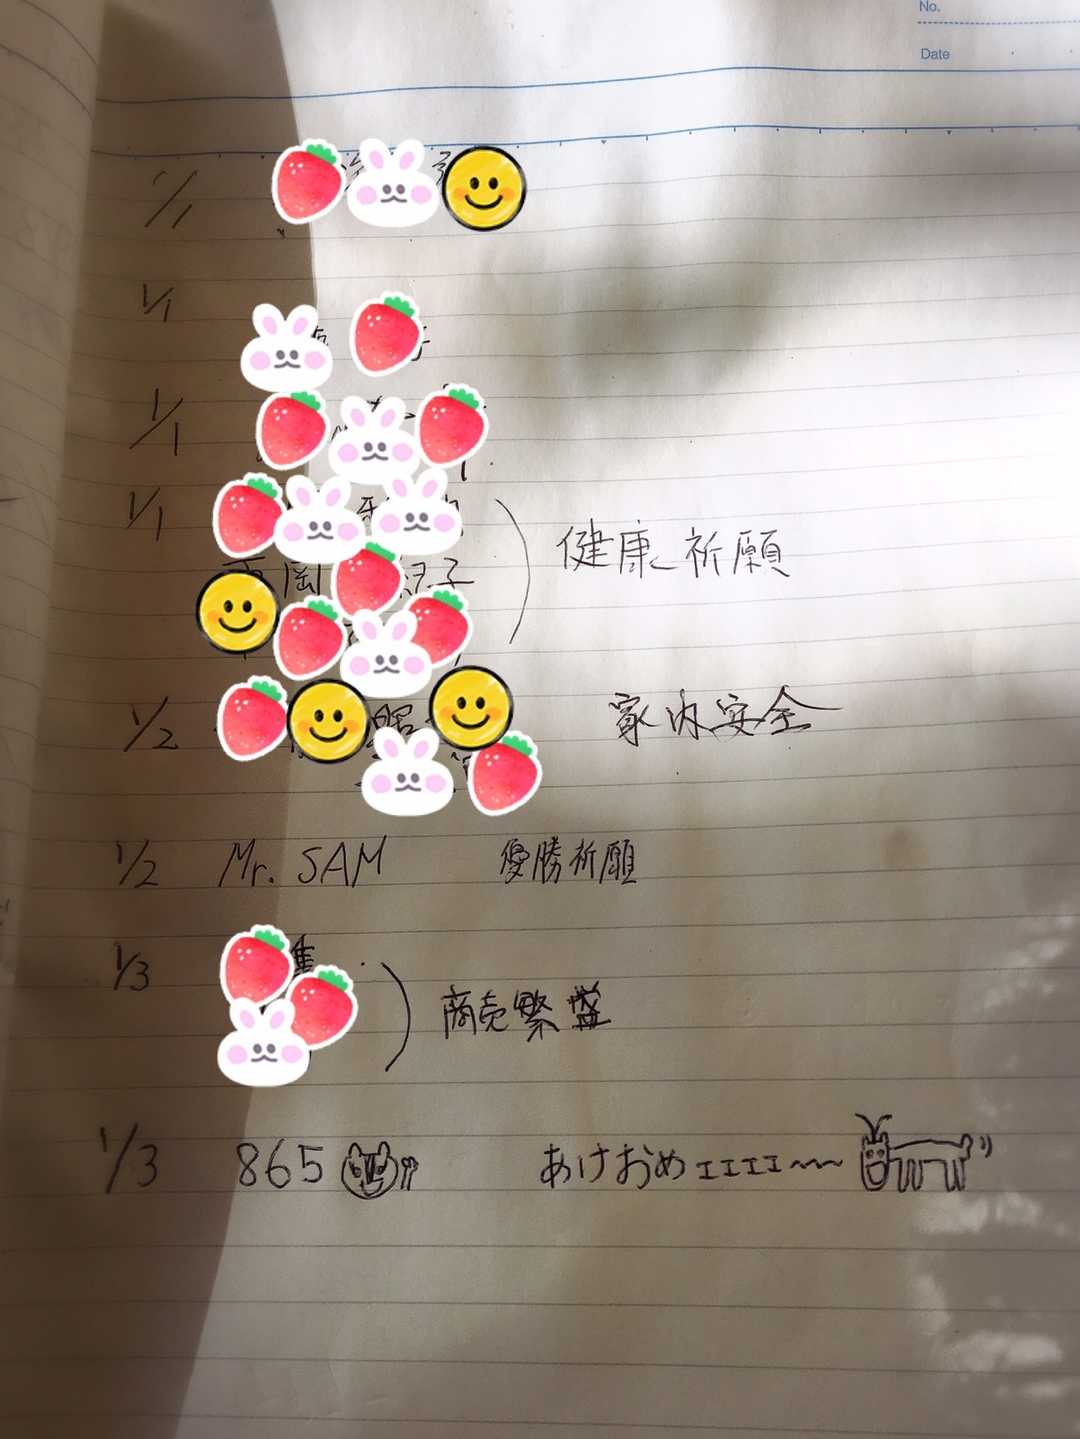 No.
Date
1/1
1/1
1/1
1/1
健康祈願
1/2 家内安全
1/2 Mr. SAM 優勝祈願
1/3
商売繁盛
1/3 865 あけおめェェェェ〜〜〜